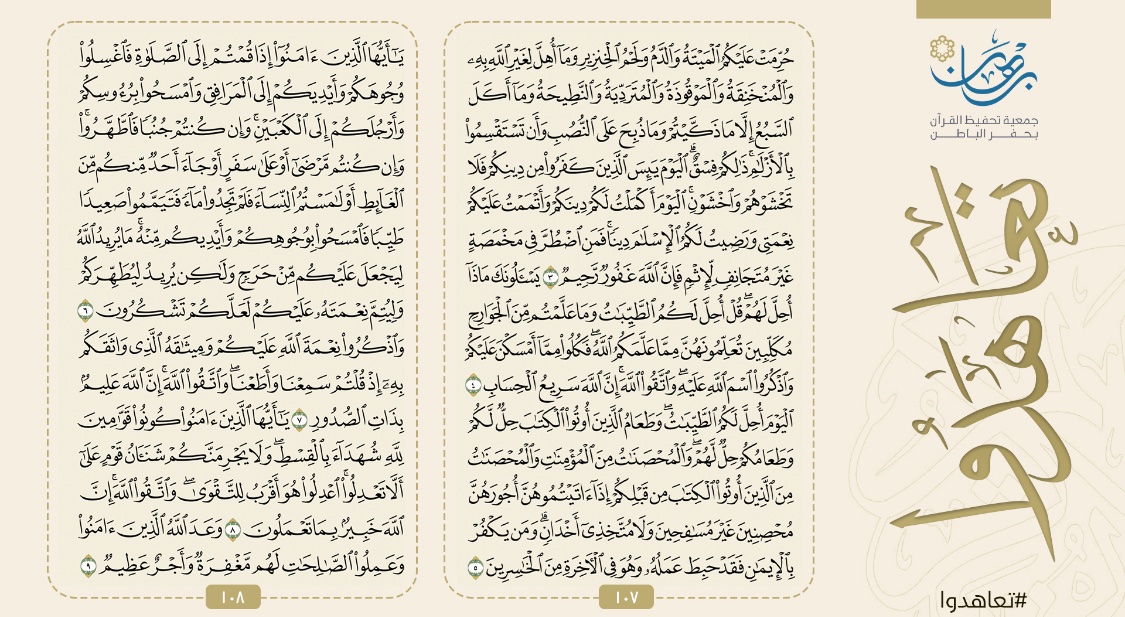 برهان
جمعية تحفيظ القرآن
بحفر الباطن
تعاهدوا
#تعاهدوا
حُرِّمَتْ عَلَيْكُمُ ٱلْمَيْتَةُ وَٱلدَّمُ وَلَحْمُ ٱلْخِنزِيرِ وَمَآ أُهِلَّ لِغَيْرِ ٱللَّهِ بِهِۦ
وَٱلْمُنْخَنِقَةُ وَٱلْمَوْقُوذَةُ وَٱلْمُتَرَدِّيَةُ وَٱلنَّطِيحَةُ وَمَآ أَكَلَ
ٱلسَّبُعُ إِلَّا مَا ذَكَّيْتُمْ وَمَا ذُبِحَ عَلَى ٱلنُّصُبِ وَأَن تَسْتَقْسِمُوا۟
بِٱلْأَزْلَٰمِ ۚ ذَٰلِكُمْ فِسْقٌ ۗ ٱلْيَوْمَ يَئِسَ ٱلَّذِينَ كَفَرُوا۟ مِن دِينِكُمْ فَلَا
تَخْشَوْهُمْ وَٱخْشَوْنِ ۚ ٱلْيَوْمَ أَكْمَلْتُ لَكُمْ دِينَكُمْ وَأَتْمَمْتُ عَلَيْكُمْ
نِعْمَتِى وَرَضِيتُ لَكُمُ ٱلْإِسْلَٰمَ دِينًا ۚ فَمَنِ ٱضْطُرَّ فِى مَخْمَصَةٍ
غَيْرَ مُتَجَانِفٍ لِّإِثْمٍ ۙ فَإِنَّ ٱللَّهَ غَفُورٌ رَّحِيمٌ ٣ يَسْـَٔلُونَكَ مَاذَآ
أُحِلَّ لَهُمْ ۖ قُلْ أُحِلَّ لَكُمُ ٱلطَّيِّبَٰتُ ۙ وَمَا عَلَّمْتُم مِّنَ ٱلْجَوَارِحِ
مُكَلِّبِينَ تُعَلِّمُونَهُنَّ مِمَّا عَلَّمَكُمُ ٱللَّهُ ۖ فَكُلُوا۟ مِمَّآ أَمْسَكْنَ عَلَيْكُمْ
وَٱذْكُرُوا۟ ٱسْمَ ٱللَّهِ عَلَيْهِ ۖ وَٱتَّقُوا۟ ٱللَّهَ ۚ إِنَّ ٱللَّهَ سَرِيعُ ٱلْحِسَابِ ٤
ٱلْيَوْمَ أُحِلَّ لَكُمُ ٱلطَّيِّبَٰتُ ۖ وَطَعَامُ ٱلَّذِينَ أُوتُوا۟ ٱلْكِتَٰبَ حِلٌّ لَّكُمْ
وَطَعَامُكُمْ حِلٌّ لَّهُمْ ۖ وَٱلْمُحْصَنَٰتُ مِنَ ٱلْمُؤْمِنَٰتِ وَٱلْمُحْصَنَٰتُ
مِنَ ٱلَّذِينَ أُوتُوا۟ ٱلْكِتَٰبَ مِن قَبْلِكُمْ إِذَآ ءَاتَيْتُمُوهُنَّ أُجُورَهُنَّ
مُحْصِنِينَ غَيْرَ مُسَٰفِحِينَ وَلَا مُتَّخِذِىٓ أَخْدَانٍ ۗ وَمَن يَكْفُرْ
بِٱلْإِيمَٰنِ فَقَدْ حَبِطَ عَمَلُهُۥ وَهُوَ فِى ٱلْـَٔاخِرَةِ مِنَ ٱلْخَٰسِرِينَ ٥
١٠٧
يَٰٓأَيُّهَا ٱلَّذِينَ ءَامَنُوٓا۟ إِذَا قُمْتُمْ إِلَى ٱلصَّلَوٰةِ فَٱغْسِلُوا۟
وُجُوهَكُمْ وَأَيْدِيَكُمْ إِلَى ٱلْمَرَافِقِ وَٱمْسَحُوا۟ بِرُءُوسِكُمْ
وَأَرْجُلَكُمْ إِلَى ٱلْكَعْبَيْنِ ۚ وَإِن كُنتُمْ جُنُبًا فَٱطَّهَّرُوا۟ ۚ
وَإِن كُنتُم مَّرْضَىٰٓ أَوْ عَلَىٰ سَفَرٍ أَوْ جَآءَ أَحَدٌ مِّنكُم مِّنَ
ٱلْغَآئِطِ أَوْ لَٰمَسْتُمُ ٱلنِّسَآءَ فَلَمْ تَجِدُوا۟ مَآءً فَتَيَمَّمُوا۟ صَعِيدًا
طَيِّبًا فَٱمْسَحُوا۟ بِوُجُوهِكُمْ وَأَيْدِيكُم مِّنْهُ ۚ مَا يُرِيدُ ٱللَّهُ
لِيَجْعَلَ عَلَيْكُم مِّنْ حَرَجٍ وَلَٰكِن يُرِيدُ لِيُطَهِّرَكُمْ
وَلِيُتِمَّ نِعْمَتَهُۥ عَلَيْكُمْ لَعَلَّكُمْ تَشْكُرُونَ ٦
وَٱذْكُرُوا۟ نِعْمَةَ ٱللَّهِ عَلَيْكُمْ وَمِيثَٰقَهُ ٱلَّذِى وَاثَقَكُم
بِهِۦٓ إِذْ قُلْتُمْ سَمِعْنَا وَأَطَعْنَا ۖ وَٱتَّقُوا۟ ٱللَّهَ ۚ إِنَّ ٱللَّهَ عَلِيمٌۢ
بِذَاتِ ٱلصُّدُورِ ٧ يَٰٓأَيُّهَا ٱلَّذِينَ ءَامَنُوا۟ كُونُوا۟ قَوَّٰمِينَ
لِلَّهِ شُهَدَآءَ بِٱلْقِسْطِ ۖ وَلَا يَجْرِمَنَّكُمْ شَنَـَٔانُ قَوْمٍ عَلَىٰٓ
أَلَّا تَعْدِلُوا۟ ۚ ٱعْدِلُوا۟ هُوَ أَقْرَبُ لِلتَّقْوَىٰ ۖ وَٱتَّقُوا۟ ٱللَّهَ ۚ إِنَّ
ٱللَّهَ خَبِيرٌۢ بِمَا تَعْمَلُونَ ٨ وَعَدَ ٱللَّهُ ٱلَّذِينَ ءَامَنُوا۟
وَعَمِلُوا۟ ٱلصَّٰلِحَٰتِ ۙ لَهُم مَّغْفِرَةٌ وَأَجْرٌ عَظِيمٌ ٩
١٠٨